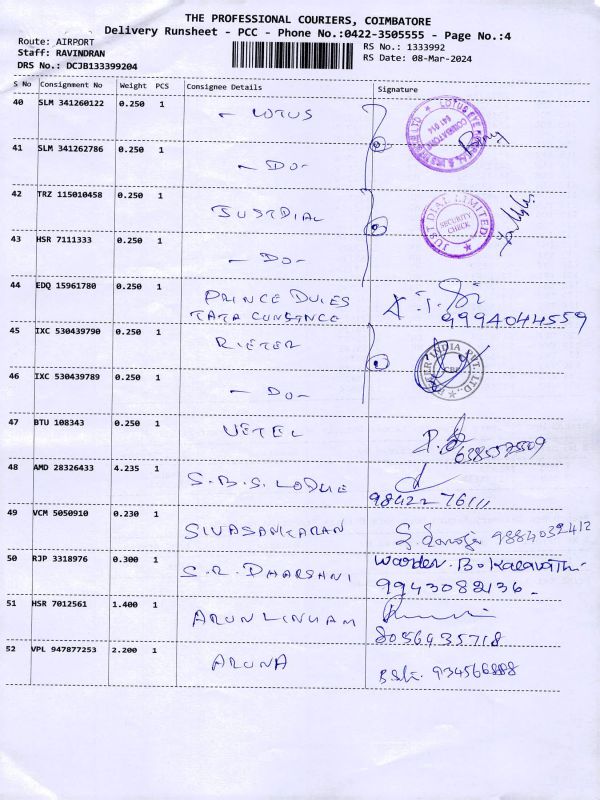 THE PROFESSIONAL COURIERS, COIMBATORE
Delivery Runsheet - PCC - Phone No.:0422-3505555 - Page No.:4
Route: AIRPORT
Staff: RAVINDRAN
DRS No.: DCJB133399204
RS No.: 1333992
RS Date: 08-Mar-2024
S No Consignment No Weight PCS Consignee Details Signature
40 SLM 341260122 0.250 1 - LOTUS
41 SLM 341262786 0.250 1 - DO -
42 TRZ 115010458 0.250 1 JUSTDIAL
JUST DIAL LIMITED.
SECURITY
CHECK
43 HSR 7111333 0.250 1 - DO -
44 EDQ 15961780 0.250 1 PRINCE
TATA
9994044559
45 IXC 530439790 0.250 1 RIETER
INDIA PVT. LTD.
46 IXC 530439789 0.250 1 - DO -
47 BTU 108343 0.250 1
48 AMD 28326433 4.235 1 S.B.S.
49 VCM 5050910 0.230 1 SIVASANKARAN
9884032412
50 RJP 3318976 0.300 1 S.R. DHARSANI
Warden.
9943082136.
51 HSR 7012561 1.400 1 ARUNLINGAM
8056935718
52 VPL 947877253 2.200 1 ARUNA